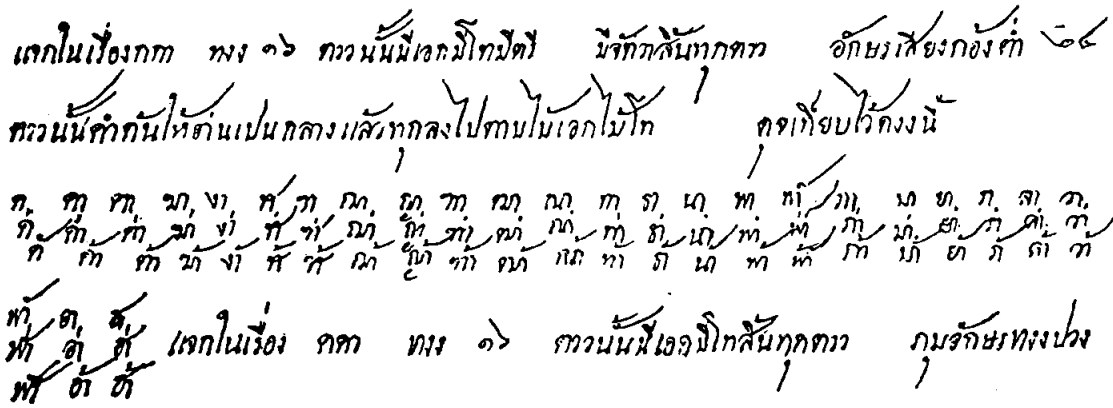 แจกในเรื่องกกา ทงง ๑๖ ตววนั้นมีเอกมีโทมีตรี มีจัตวาสิ้นทุกตวว อักษรเสียงกลางต่ำ ๒๔
ตววนั้นคำต้นให้อ่านเปนกลางแล้วทุกลงไปตามไม้เอกไม้โท ดุจเทียบไว้ดงงนี้
ค คา ฅา ฆา งา ช ซา ฌา ญา ฑา ฒา ณา ทา ธา นา พา ฟา ภา มา ยา ร ลา วา
ค่ ค่า ฅ่า ฆ่า ง่า ช่ ซ่า ฌ่า ญ่า ฑ่า ฒ่า ณ่า ท่า ธ่า น่า พ่า ฟ่า ภ่า ม่า ย่า ร่า ล่า ว่า
ค้ ค้า ฅ้า ฆ้า ง้า ช้ ซ้ ฌ้า ญ้า ฑ้า ฒ้า ณ้า ท้า ธ้า น้า พ้า ฟ้า ภ้า ม้า ย้า ร้ ล้า ว้า
อา
อ่า
อ้า
แจกในเรื่อง กกา ทงง ๑๖ ตววนั้นมีเอกมีโทสิ้นทุกตวว กุมอักษรทงงปวง